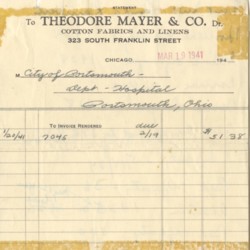 STATEMENT
To THEODORE MAYER & CO. Dr.
COTTON FABRICS AND LINENS
323 SOUTH FRANKLIN STREET
CHICAGO MAR 19 1941 194
M City of Portsmouth -
Dept - Hospital
Portsmouth, Ohio
TO INVOICE RENDERED due
1/23/41 7045 2/19 $ 51 38